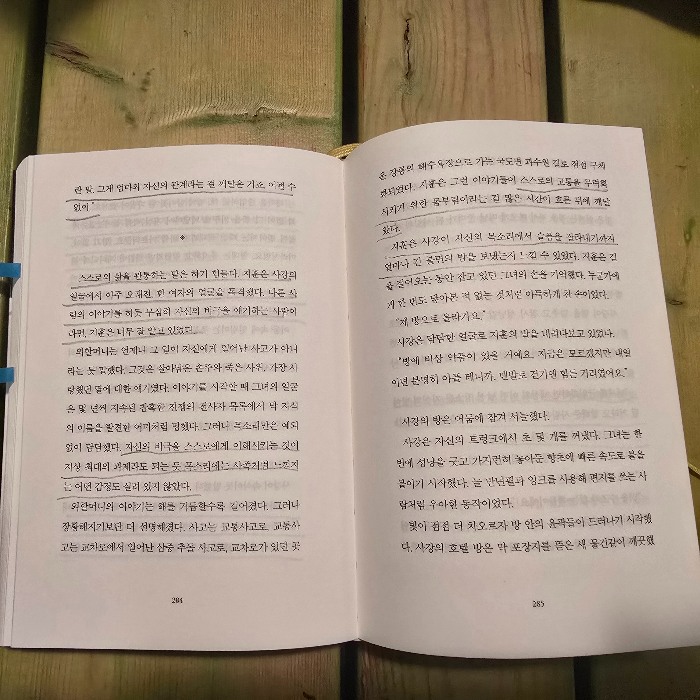 란 말. 그게 엄마와 자신의 관계라는 걸 깨달은 기요. 어쩔 수
없어."
*
스스로의 삶을 관통하는 말은 하기 힘들다. 지훈은 사강의
얼굴에서 아주 오래전, 한 여자의 얼굴을 목격했다. 다른 사
람의 이야기를 하듯 무심히 자신의 비극을 얘기하는 사람이
라면, 지훈은 너무 잘 알고 있었다.
외할머니는 언제나 그 일이 자신에게 일어난 사고가 아니
라는 듯 말했다. 그것은 살아남은 손주와 죽은 사위, 가장 사
랑했던 딸에 대한 얘기였다. 이야기를 시작할 때 그녀의 얼굴
은 몇 년씩 지속된 참혹한 전쟁의 전사자 목록에서 막 자식
의 이름을 발견한 어미처럼 핑했다. 그러나 목소리만은 예외
없이 담담했다. 자신의 비극을 스스로에게 이해시키는 것이
지상 최대의 과제라도 되는 듯 목소리에는 사족처럼 느껴지
는 어떤 감정도 실려 있지 않았다.
외할머니의 이야기는 해를 거듭할수록 길어졌다. 그러나
장황해지기보단 더 선명해졌다. 사고는 교통사고로, 교통사
고는 교차로에서 일어난 삼중 추돌 사고로, 교차로가 있던 곳
284
은 강릉의 해수욕장으로 가는 국도변 과수원 길로 점점 구체
화되었다. 지훈은 그런 이야기들이 스스로의 고통을 무력화
시키기 위한 몸부림이라는 걸 많은 시간이 흐른 뒤에 깨달
았다.
지훈은 사강이 자신의 목소리에서 슬픔을 잘라내기까지
얼마나 긴 불면의 밤을 보냈는지 느낄 수 있었다. 지훈은 길
을 걸어오는 동안 잡고 있던 그녀의 손을 기억했다. 누군가에
게 한 번도 닿아본 적 없는 것처럼 아득하게 찬 손이었다.
"제 방으로 올라가요."
사강은 담담한 얼굴로 지훈의 발을 내려다보고 있었다.
"방에 비상 약품이 있을 거예요. 지금은 모르겠지만 내일
이면 분명히 아플 테니까. 맨발로 걷기엔 힘든 거리였어요."
사강의 방은 어둠에 잠겨 서늘했다.
사강은 자신의 트렁크에서 초 몇 개를 꺼냈다. 그녀는 한
번에 성냥을 긋고 가지런히 놓아둔 향초에 빠른 속도로 불을
붙이기 시작했다. 늘 만년필과 잉크를 사용해 편지를 쓰는 사
람처럼 우아한 동작이었다.
빛이 점점 더 차오르자 방 안의 윤곽들이 드러나기 시작했
다. 사강의 호텔 방은 막 포장지를 뜯은 새 물건같이 깨끗했
285